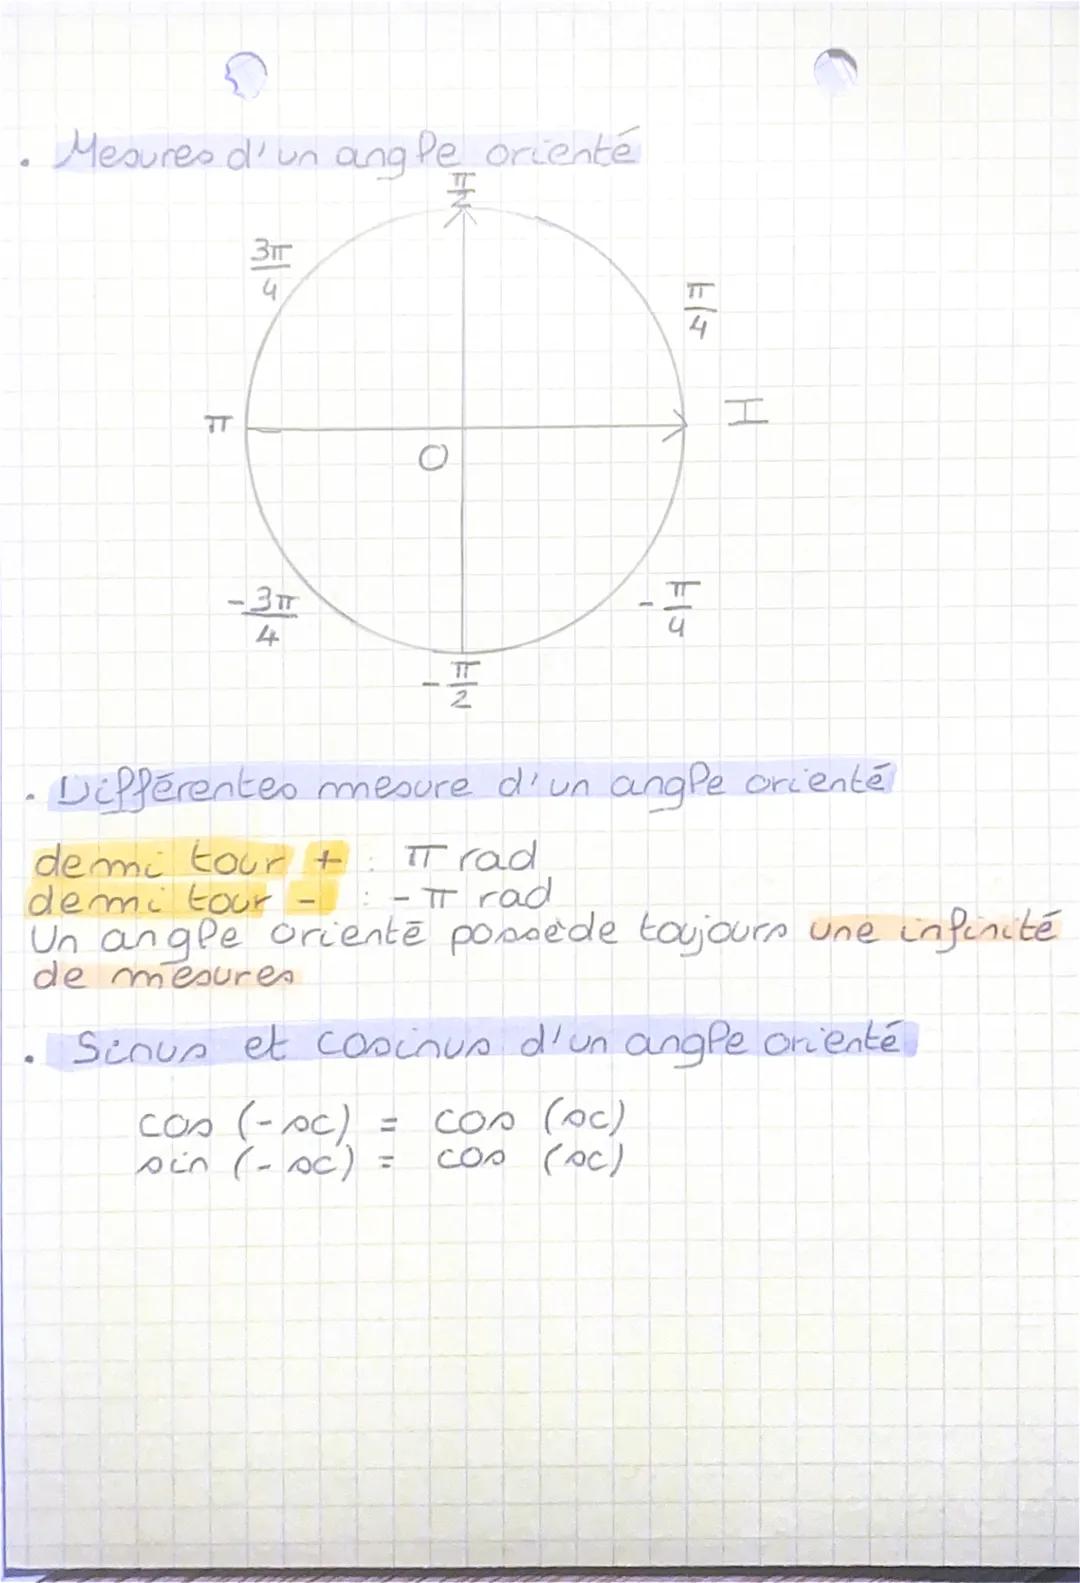 . Mesures d'un angle orienté
π/2
3π/4
π/4
π
I
O
-3π/4
-π/4
-π/2
. Différentes mesure d'un angle orienté
demi tour + : π rad
demi tour - : -π rad
Un angle orienté possède toujours une infinité
de mesures
. Sinus et cosinus d'un angle orienté
cos (-x) = cos (x)
sin (-x) = cos (x)